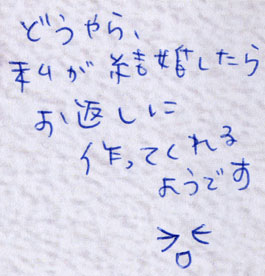 どうやら、
私が結婚したら
お返しに
作ってくれる
ようです